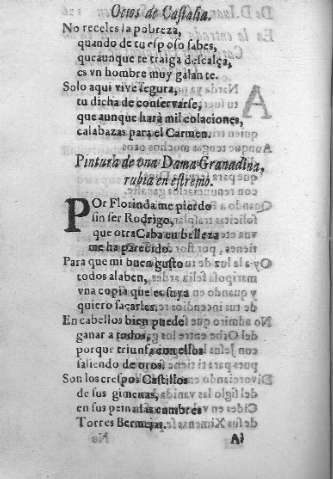 Ocios de Castalia.
No receles la pobreza,
quando de tu esposo sabes,
que aunque te traiga descalça,
es vn hombre muy galante.
Solo aqui viue segura,
tu dicha de conseruarse,
que aunque hará mil colaciones,
calabazas para el Carmen.
Pintura de vna Dama Granadina,
rubia en estremo.
POr Florinda me pierdo
sin ser Rodrigo,
que otra Caba en belleza
me ha parecido.
Para que mi buen gusto
todos alaben,
vna copia que es suya
quiero sacarles.
En cabellos bien puede
ganar a todos,
porque triunfa con ellos
saliendo de oros.
Son los crespos Castillos
de sus
en sus peinadas cumbres
Torres Bermejas.
A